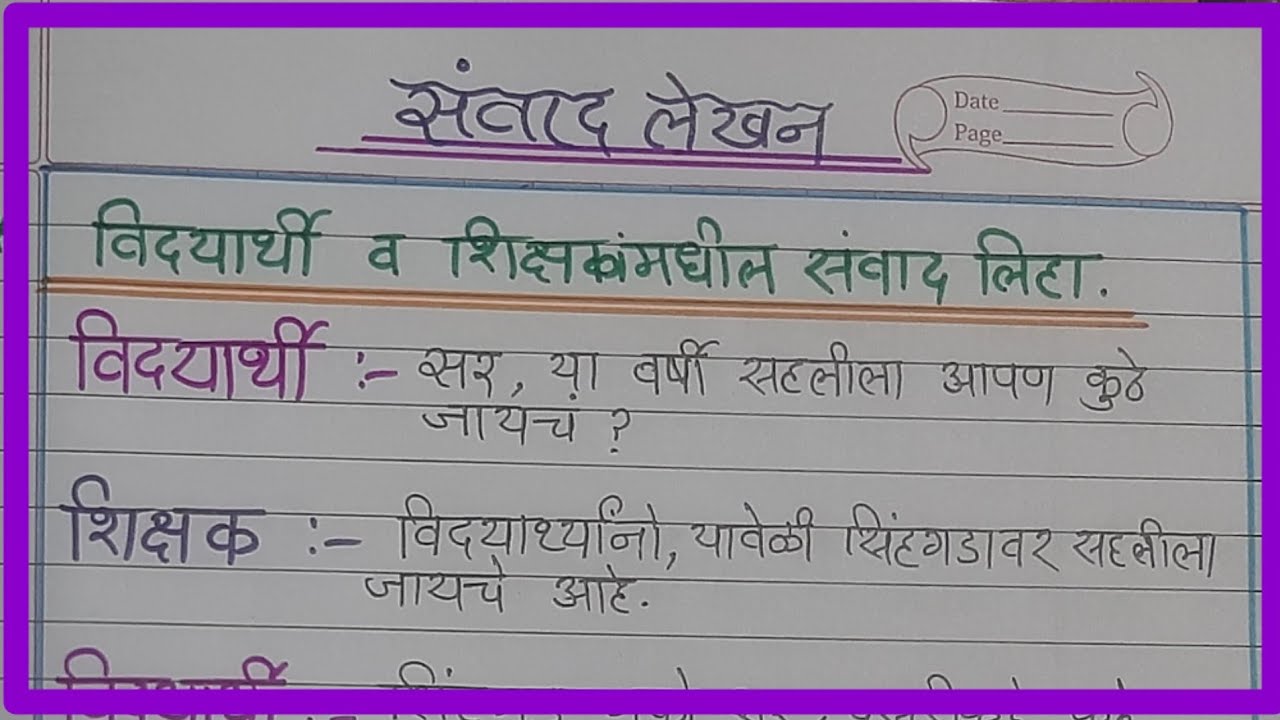 संवाद लेखन
Date
Page
विद्यार्थी व शिक्षकांमधील संवाद लिहा.
विद्यार्थी :- सर, या वर्षी सहलीला आपण कुठे
जायचं ?
शिक्षक :- विद्यार्थ्यांनो, यावेळी सिंहगडावर सहलीला
जायचे आहे.
विद्यार्थी :-